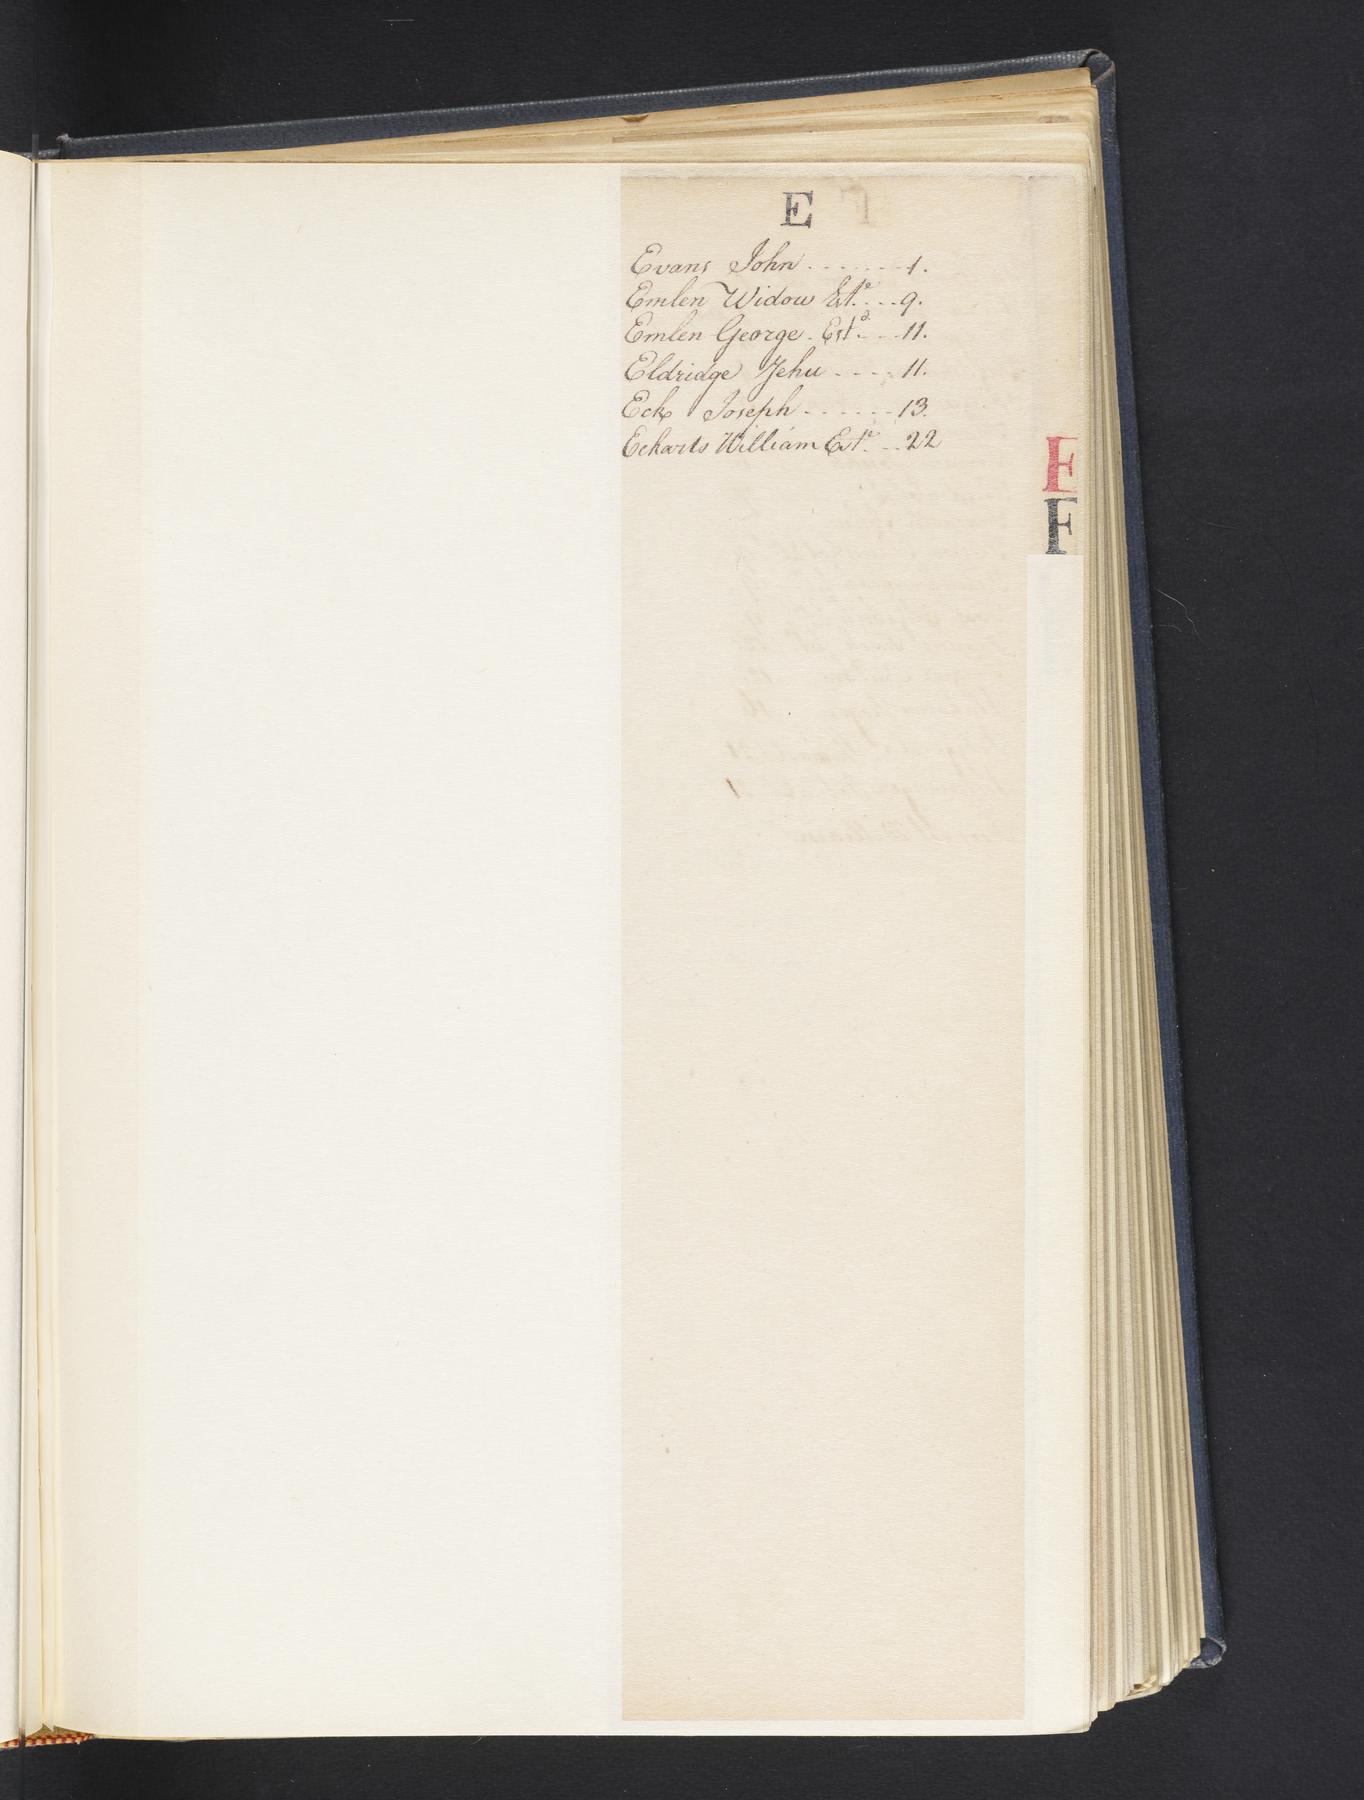 E
Evans John . . . . . . . 1.
Emlen Widow Est.e . . . 9.
Emlen George . Est.e . . . 11.
Eldridge Jehu . . . . 11.
Eck Joseph . . . . . . . 13.
Eckarts William Est.e . . . 22
E
F